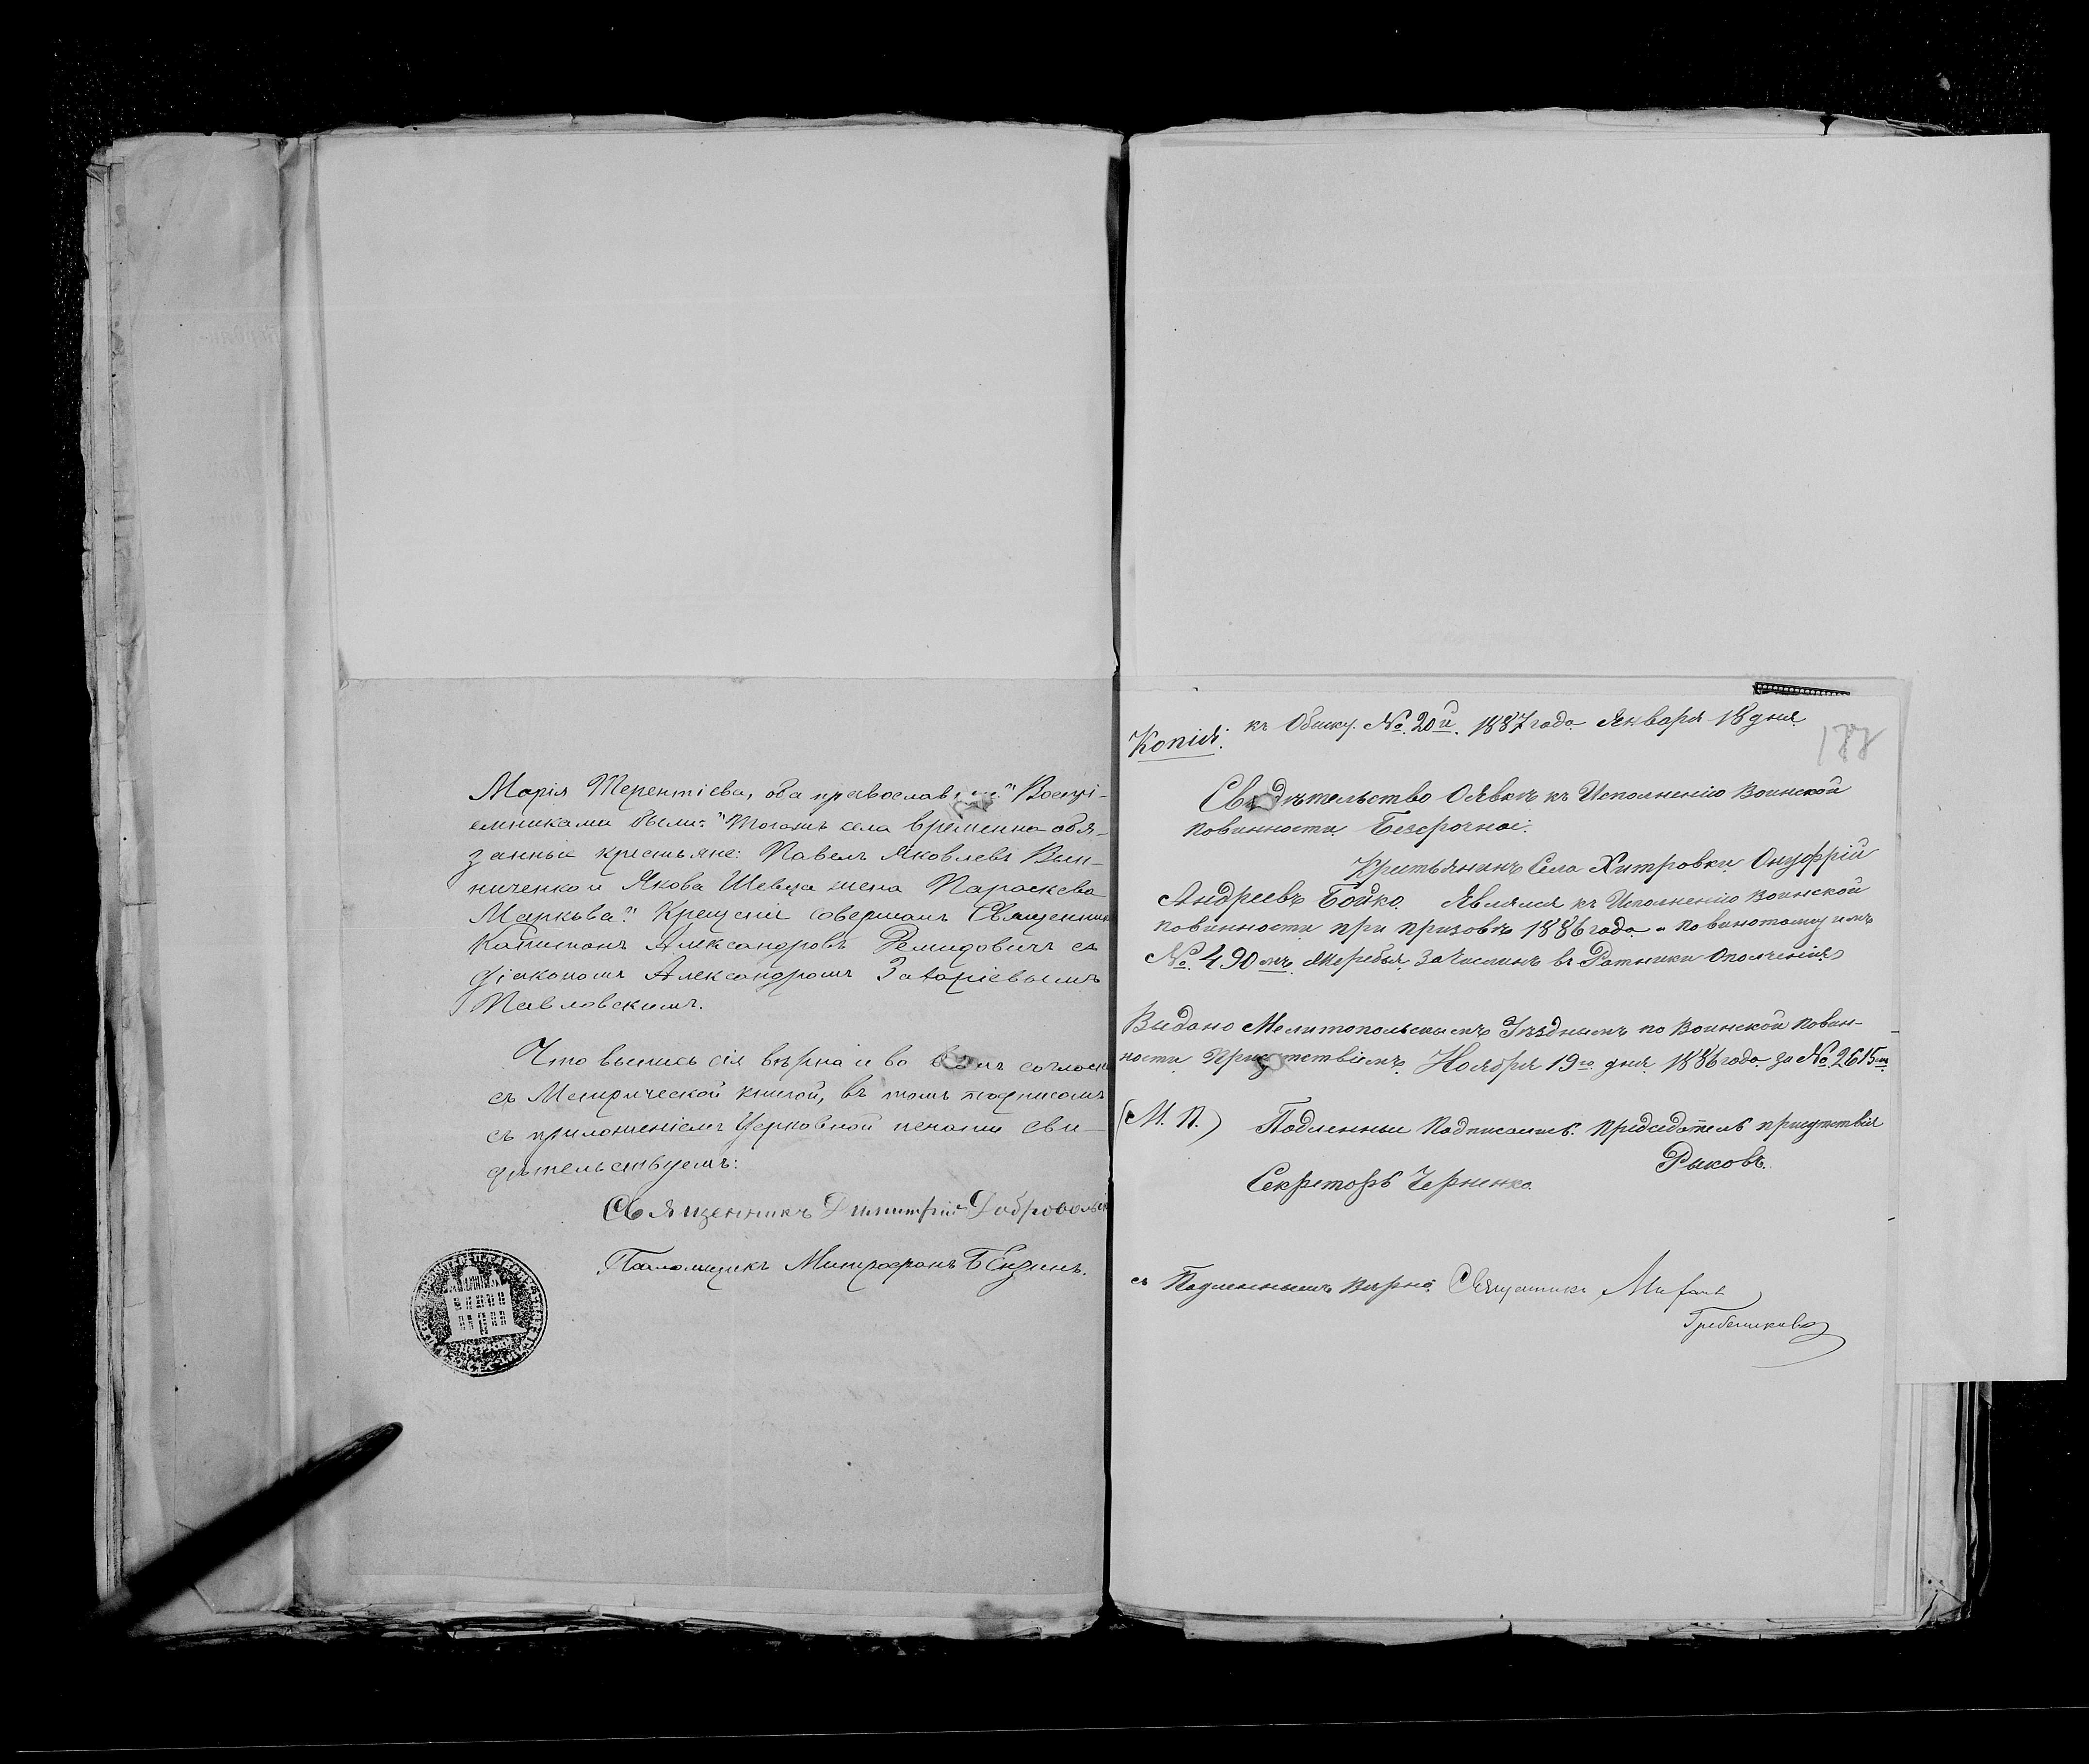 Марія Терентіева, оба православные." Воспрі-
емниками были: "Тогожъ села временно обя-
занные крестьяне: Павелъ Яковлевъ Вин-
ниченко и Якова Шевца жена Параскева
Маркова." Крещеніе совершалъ Священник
Капитонъ Александровъ Демидовичъ съ
діакономъ Александромъ Захаріевымъ
Павловскимъ.
Что выпись сія вѣрна и во всемъ согласн
съ Метрической книгой, въ томъ подписомъ
съ приложеніемъ Церковной печати сви-
дѣтельствуемъ:
Священникъ Димитрій Добровольск
Паламщикъ Митрофанъ
Копія. къ Обыску. №. 20й. 1887 года Января 18 дня.
188
Свидѣтельство О явкѣ къ Исполненію Воинской
повинности Безсрочное.
Кристьянинъ Села Хитровки Онуфрій
Андреевъ Бойко. Являлся къ Исполненію Воинской
повинности при призовѣ 1886 года и по винотому имъ
№. 490мъ Жеребья, Зачислинъ въ Ратники Ополченія
Видано Мелитопольскымъ Уѣзднымъ по Воинской Повин-
ности Присутствіемъ Ноября 19го дня 1886 года за №. 2615мъ
(М. П.) Подленные Подписалъ: Предсѣдатель присутствія
Рыковъ.
Секреторь Черненко
съ Подленнымъ Вѣрно. Священникъ
Гребениковъ